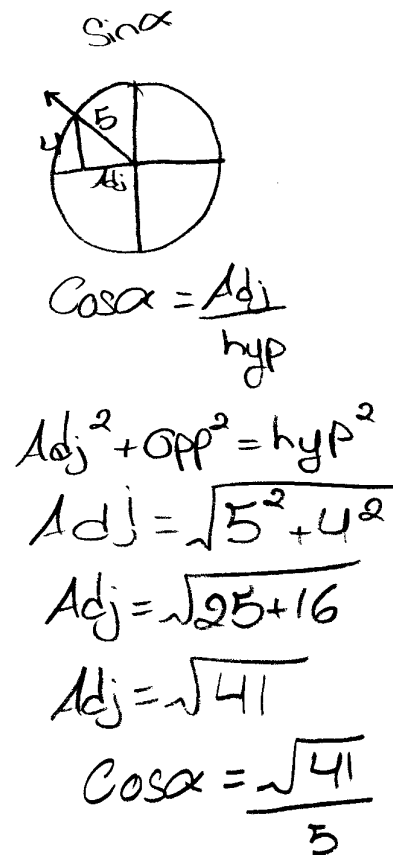 Sinα
5
4
Adj
Cosα = Adj/hyp
Adj² + Opp² = hyp²
Adj = √5² + 4²
Adj = √25+16
Adj = √41
Cosα = √41/5